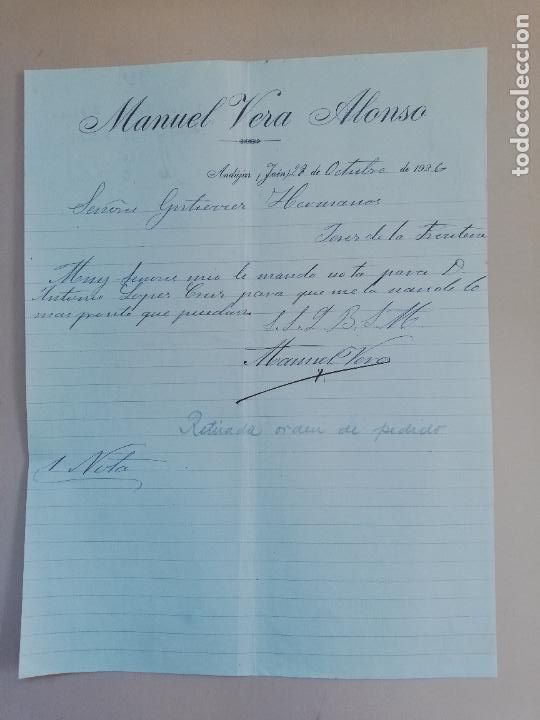 Manuel Vera Alonso
Andújar (Jaén) 28 de Octubre de 1926
Señores Gutierrez Hermanos
Jerez de la Frontera
Muy Señores mio le mando nota para D.
Antonio Lopez Cruz para que me la mande lo
mas pronto que puedan
S. S. Q. B. S. M.
Manuel Vera
Retirada orden de pedido
1 Nota
todocoleccion